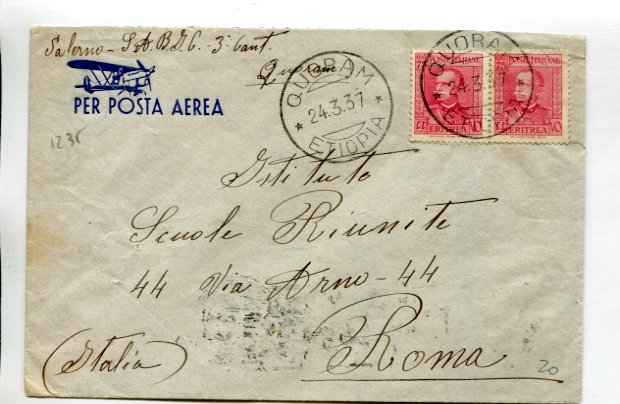 Salerno - S.A.B.I.C. - 3° Cant.
Quoram
PER POSTA AEREA
QUORAM
24.3.37
ETIOPIA
QUORAM
24.3.37
POSTE ITALIANE
ERITREA
POSTE ITALIANE
ERITREA
123r
Istituto
Scuole Riunite
44 Via Arno - 44
(Italia) Roma
20